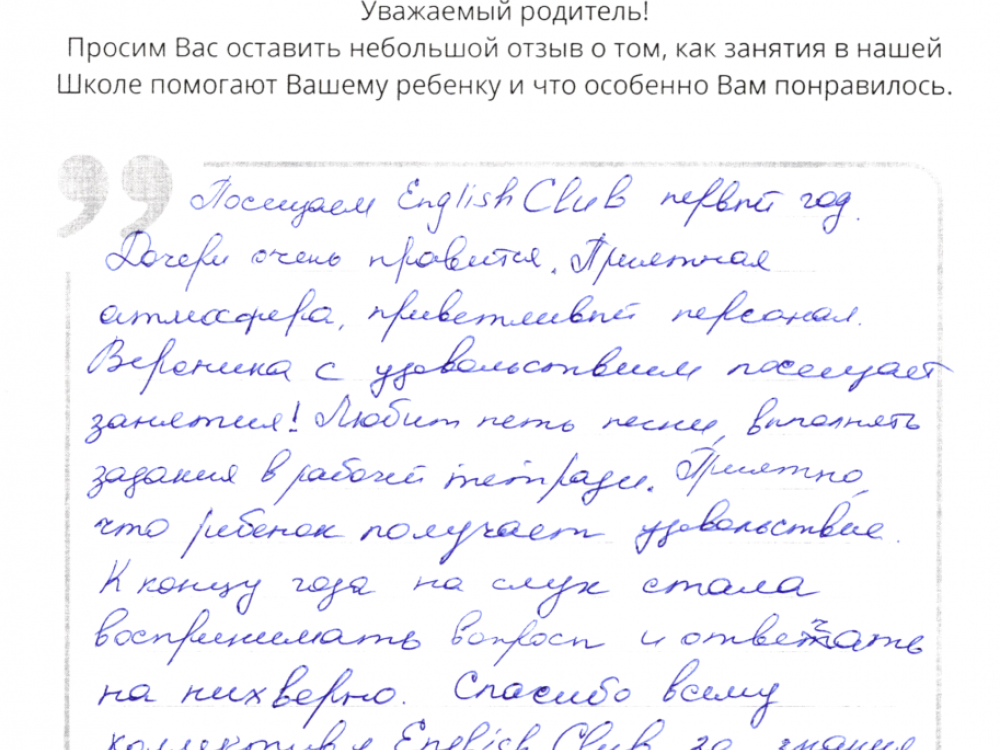 Уважаемый родитель!
Просим Вас оставить небольшой отзыв о том, как занятия в нашей
Школе помогают Вашему ребенку и что особенно Вам понравилось.
Посещаем English Club первый год.
Дочери очень нравится. Приятная
атмосфера, приветливый персонал.
Вероника с удовольствием посещает
занятия! Любит петь песни, выполнять
задания в рабочей тетради. Приятно,
что ребенок получает удовольствие.
К концу года на слух стала
воспринимать вопросы и отвечать
на них верно. Спасибо всему
коллективу English Club за знания